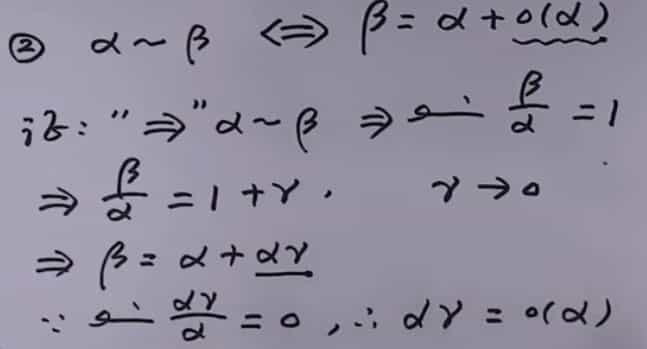 ② α ~ β ⟺ β = α + o(α)
证: "⇒" α ~ β ⇒ lim β/α = 1
⇒ β/α = 1 + γ, γ → 0
⇒ β = α + αγ
∵ lim αγ/α = 0, ∴ αγ = o(α)